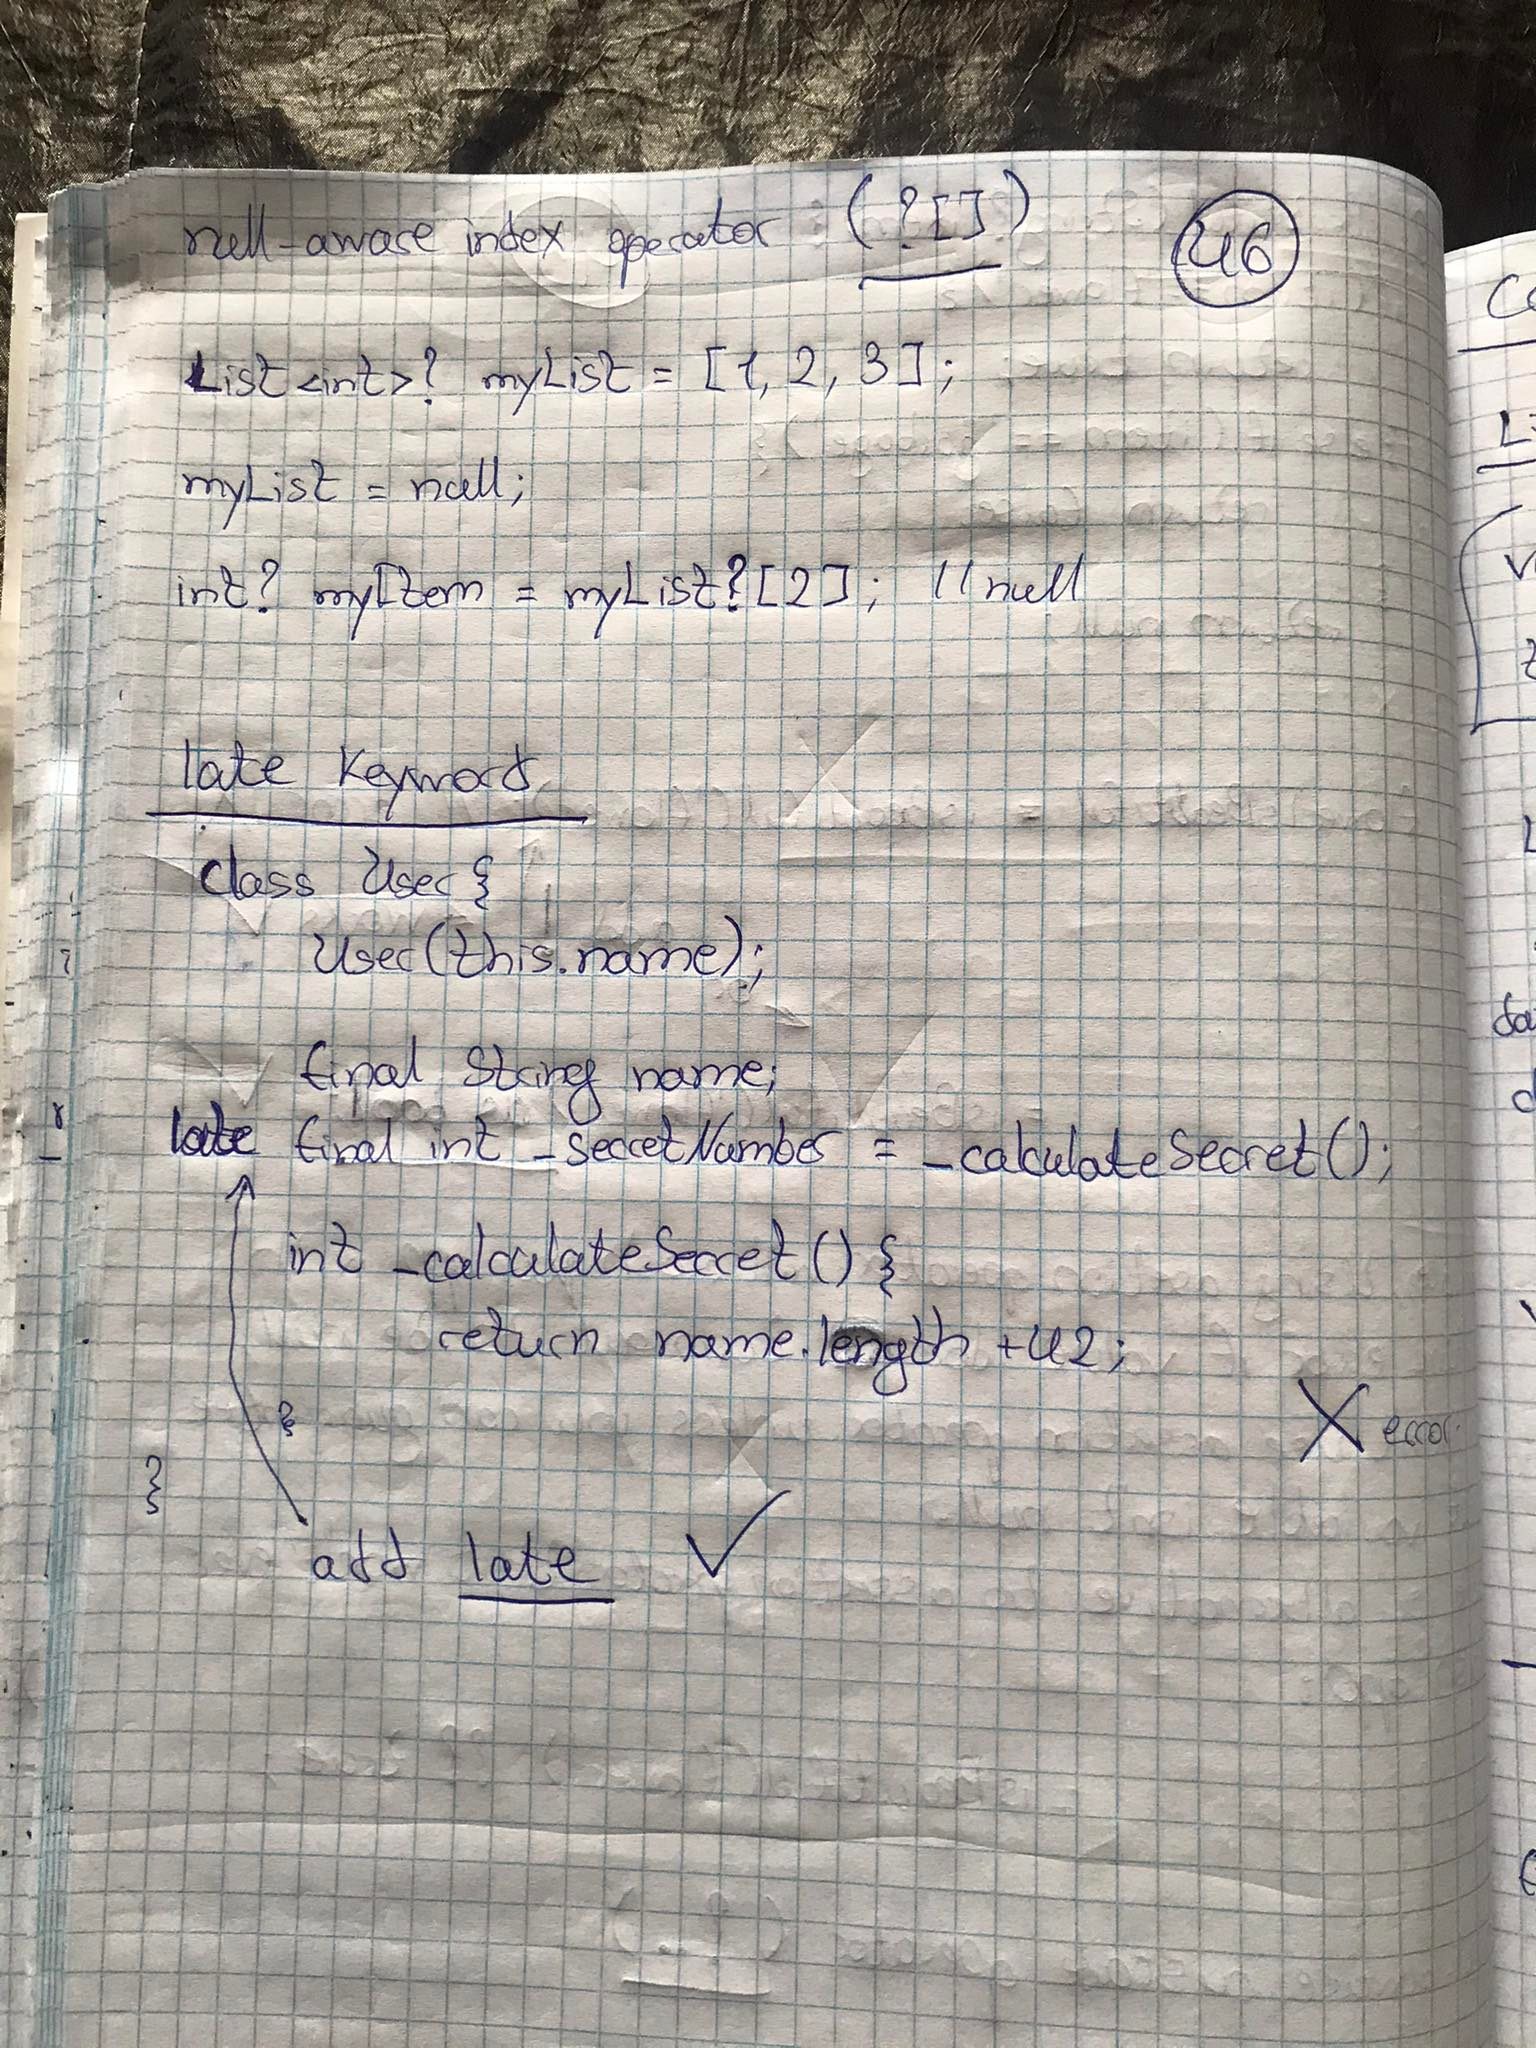 null-aware index operator (?[])
46
List<int>? myList = [1, 2, 3];
myList = null;
int? myItem = myList?[2]; //null
late keyword
class User{
User(this.name);
final String name;
late final int _secretNumber = _calculateSecret();
int _calculateSecret() {
return name.length + 42;
}
X error.
}
add late ✓